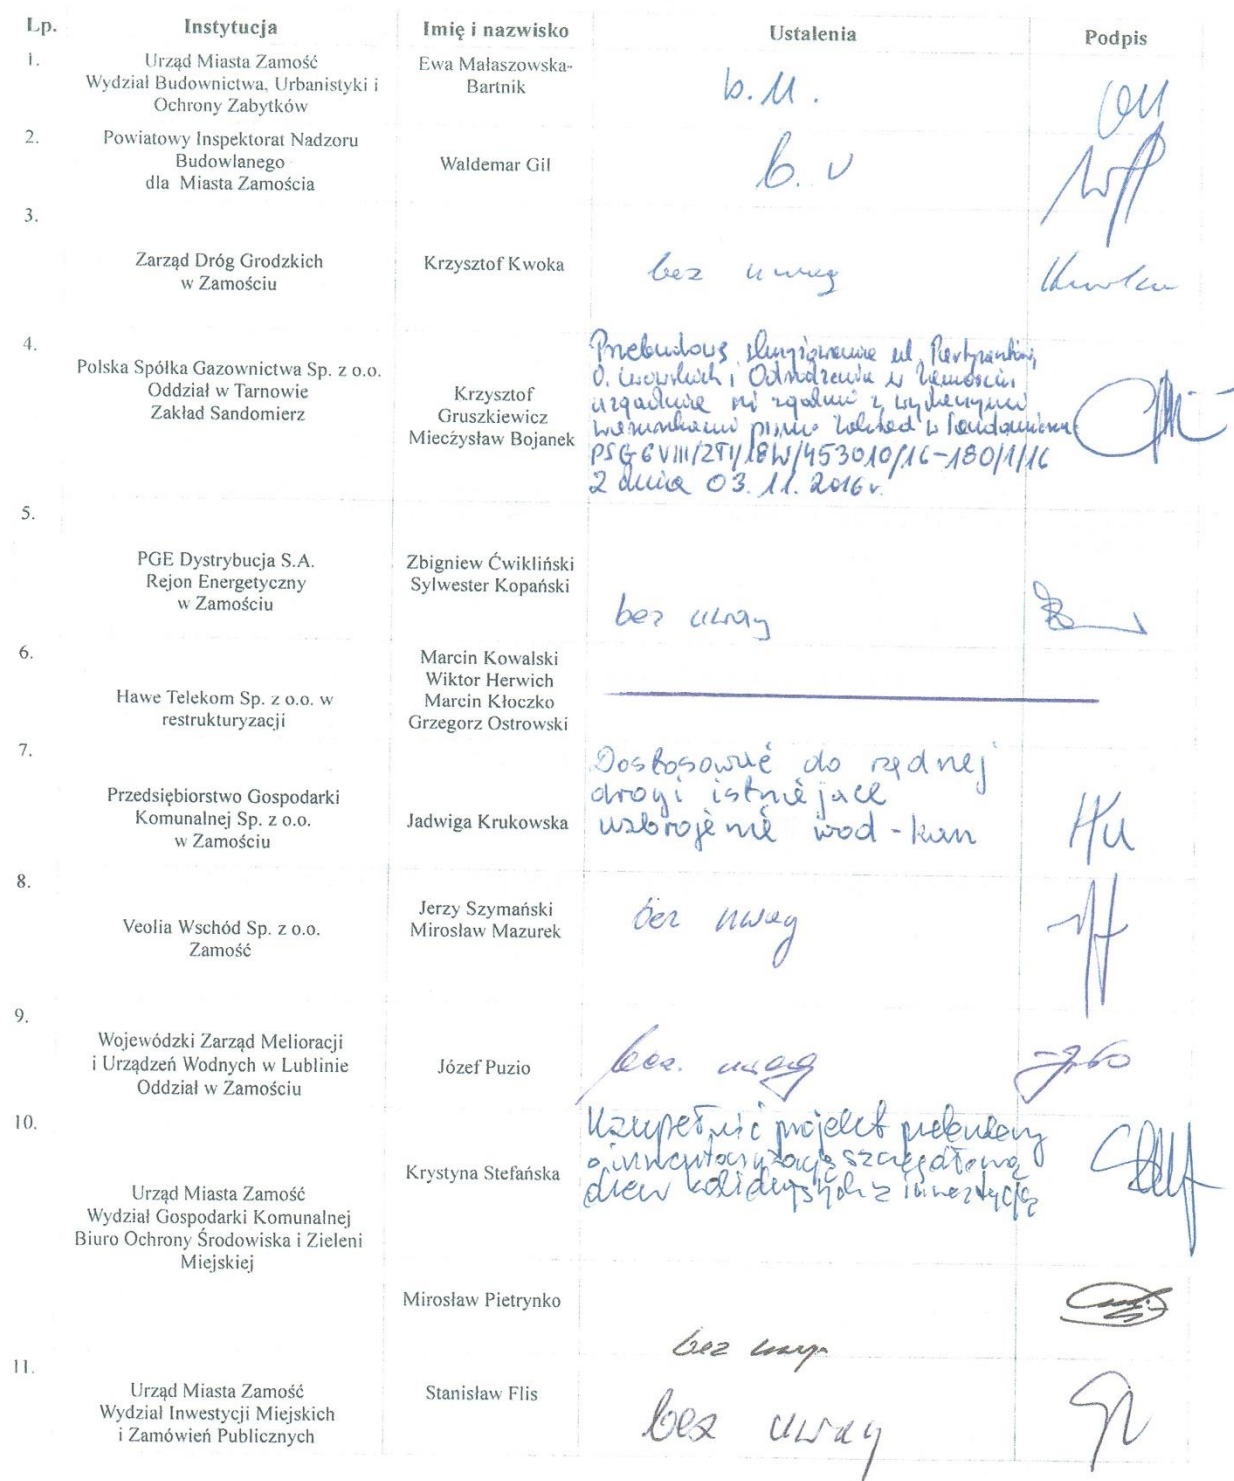 Lp. Instytucja Imię i nazwisko Ustalenia Podpis
1. Urząd Miasta Zamość
Wydział Budownictwa, Urbanistyki i
Ochrony Zabytków
Ewa Małaszowska-
Bartnik
b.u.
2. Powiatowy Inspektorat Nadzoru
Budowlanego
dla Miasta Zamościa
Waldemar Gil
b. u
3.
Zarząd Dróg Grodzkich
w Zamościu
Krzysztof Kwoka
bez uwag
Kwoka
4.
Polska Spółka Gazownictwa Sp. z o.o.
Oddział w Tarnowie
Zakład Sandomierz
Krzysztof
Gruszkiewicz
Mieczysław Bojanek
Przebudowę skrzyżowania ul. Partyzantów,
O. Lwowskich i Odrodzenia w Zamościu
uzgadnia się zgodnie z wydanymi
warunkami pismo Zakład w Sandomierzu
PSG6VIII/ZTI/18W/453010/16-180/1/16
z dnia 03.11.2016r.
5.
PGE Dystrybucja S.A.
Rejon Energetyczny
w Zamościu
Zbigniew Ćwikliński
Sylwester Kopański
bez uwag
6.
Hawe Telekom Sp. z o.o. w
restrukturyzacji
Marcin Kowalski
Wiktor Herwich
Marcin Kłoczko
Grzegorz Ostrowski
7.
Przedsiębiorstwo Gospodarki
Komunalnej Sp. z o.o.
w Zamościu
Jadwiga Krukowska
Dostosować do rzędnej
drogi istniejące
uzbrojenie wod-kan
8.
Veolia Wschód Sp. z o.o.
Zamość
Jerzy Szymański
Mirosław Mazurek
bez uwag
9.
Wojewódzki Zarząd Melioracji
i Urządzeń Wodnych w Lublinie
Oddział w Zamościu
Józef Puzio
bez. uwag
10.
Urząd Miasta Zamość
Wydział Gospodarki Komunalnej
Biuro Ochrony Środowiska i Zieleni
Miejskiej
Krystyna Stefańska
Uzupełnić projekt przebudowy
o inwentaryzację szczegółową
drzew kolidujących z inwestycją
Mirosław Pietrynko
bez uwag
11.
Urząd Miasta Zamość
Wydział Inwestycji Miejskich
i Zamówień Publicznych
Stanisław Flis
bez uwag